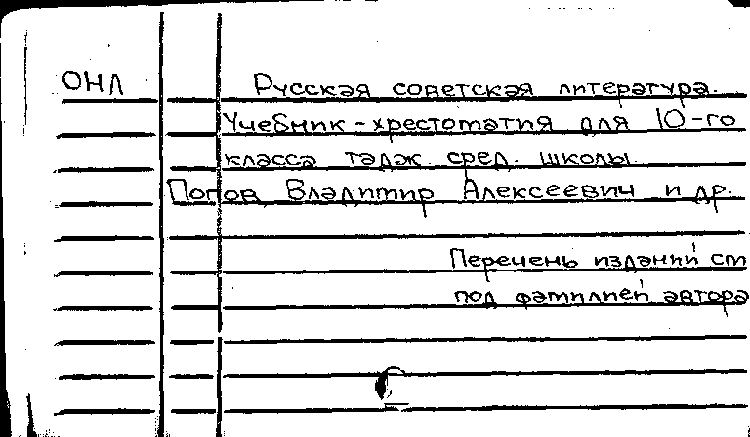 ОНЛ Русская советская литература.
Учебник-хрестоматия для 10-го
класса тадж. сред. школы.
Попов, Владимир Алексеевич и др.
Перечень изданий см
под фамилией автора